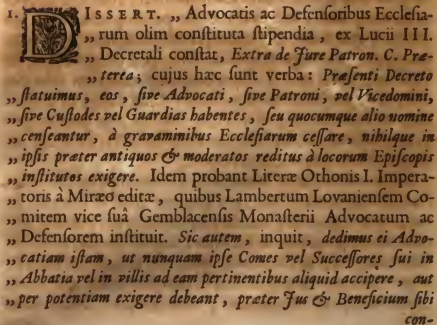 1. DISSERT. „ Advocatis ac Defenſoribus Eccleſia-
„ rum olim conſtituta ſtipendia, ex Lucii III.
„ Decretali conſtat, Extra de Jure Patron. C. Præ-
„ terea; cujus hæc ſunt verba: Præſenti Decreto
„ ſtatuimus, eos, ſive Advocati, ſive Patroni, vel Vicedomini,
„ ſive Cuſtodes vel Guardias habentes, ſeu quocumque alio nomine
„ cenſeantur, à gravaminibus Eccleſiarum ceſſare, nihilque in
„ ipſis præter antiquos & moderatos reditus à locorum Epiſcopis
„ inſtitutos exigere. Idem probant Literæ Othonis I. Impera-
„ toris à Miræo editæ, quibus Lambertum Lovanienſem Co-
„ mitem vice ſuâ Gemblacenſis Monaſterii Advocatum ac
„ Defenſorem inſtituit. Sic autem, inquit, dedimus ei Advo-
„ catiam iſtam, ut nunquam ipſe Comes vel Succeſſores ſui in
„ Abbatia vel in villis ad eam pertinentibus aliquid accipere, aut
„ per potentiam exigere debeant, præter Jus & Beneficium ſibi
con-